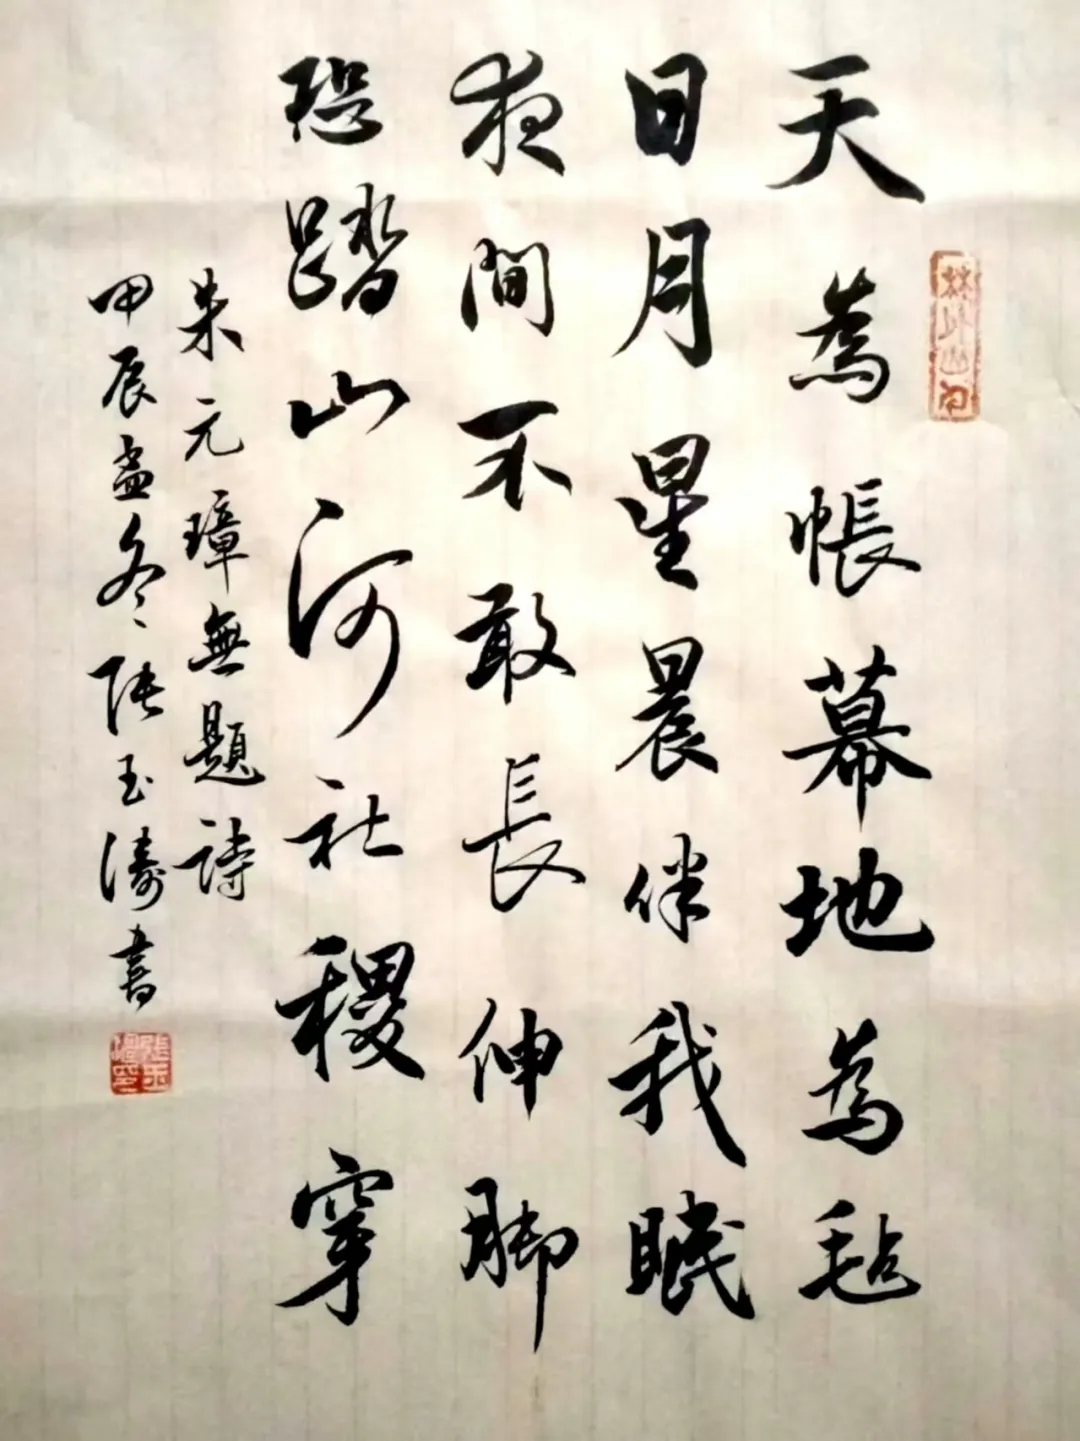 天為帳幕地為毡
日月星晨伴我眠
夜間不敢長伸脚
恐踏山河社稷穿
朱元璋無題詩
甲辰孟冬張玉濤書